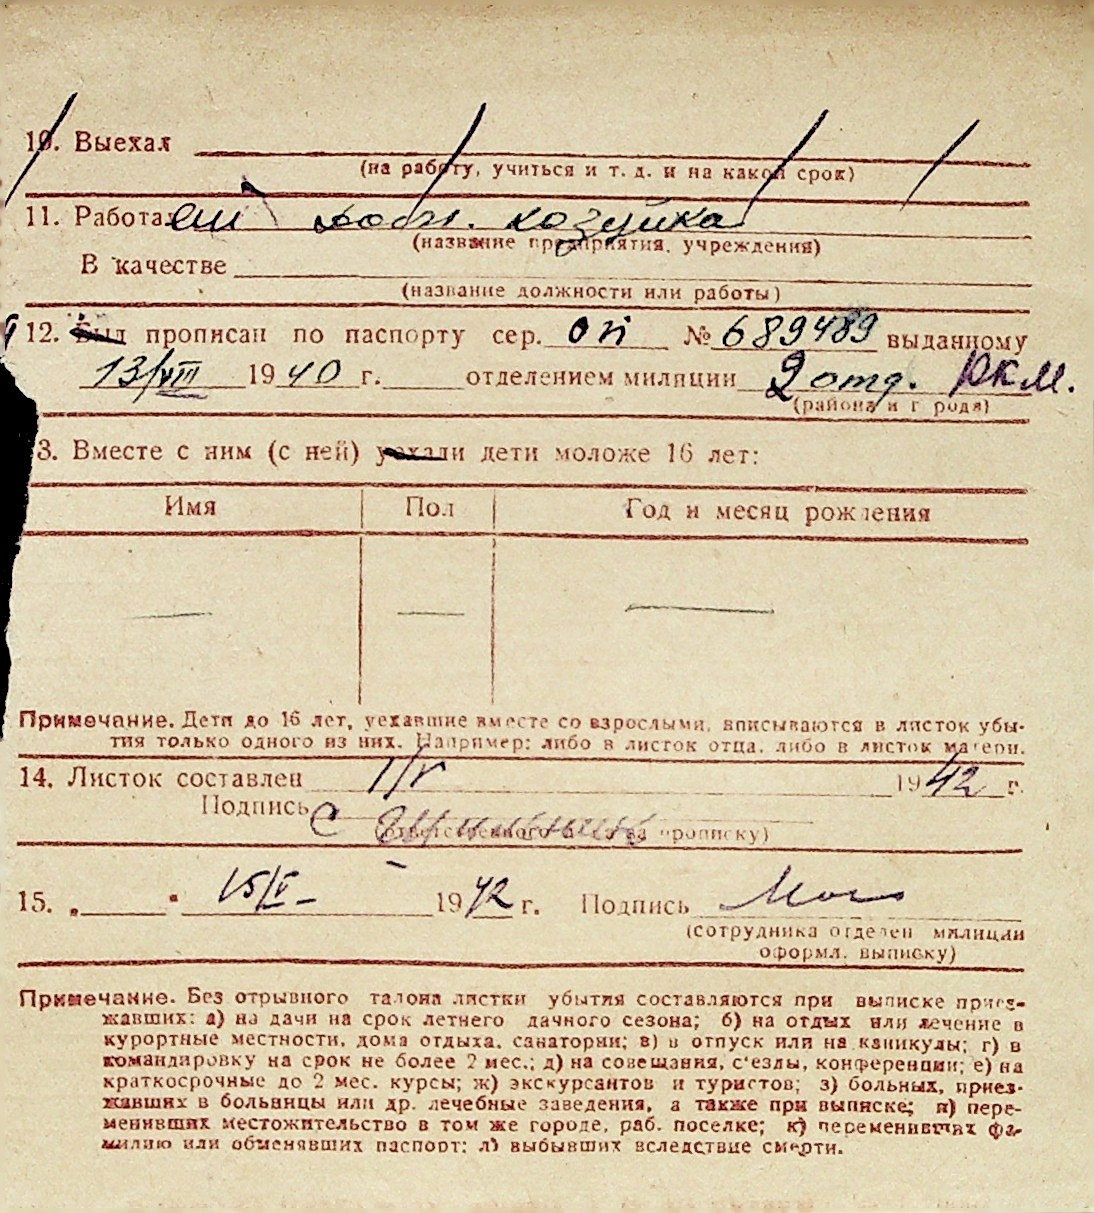 10. Выехал
(на работу, учиться и т. д. и на какой срок)
11. Работал
(название предприятия, учреждения)
В качестве
(название должности или работы)
12. Был прописан по паспорту сер. № 689489 выданному
13/VIII 1940 г. отделением милиции 2 отд. РКМ.
(района и г родя)
3. Вместе с ним (с ней) уехали дети моложе 16 лет:
Имя Пол Год и месяц рождения
Примечание. Дети до 16 лет, уехавшие вместе со взрослыми, вписываются в листок убы-
тия только одного из них. Например: либо в листок отца, либо в листок матери.
14. Листок составлен 1/V 1942 г.
Подпись
(ответственного за прописку)
15. „ " 15/V 1942 г. Подпись
(сотрудника отделен милиции
оформл. выписку)
Примечание. Без отрывного талона листки убытия составляются при выписке приез-
жавших: а) на дачи на срок летнего дачного сезона; б) на отдых или лечение в
курортные местности, дома отдыха, санатории; в) в отпуск или на каникулы; г) в
командировку на срок не более 2 мес.; д) на совещания, с'езды, конференции; е) на
краткосрочные до 2 мес. курсы; ж) экскурсантов и туристов; з) больных, приез-
жавших в больницы или др. лечебные заведения, а также при выписке; и) пере-
менивших местожительство в том же городе, раб. поселке; к) переменивших фа-
милию или обменявших паспорт; л) выбывших вследствие смерти.